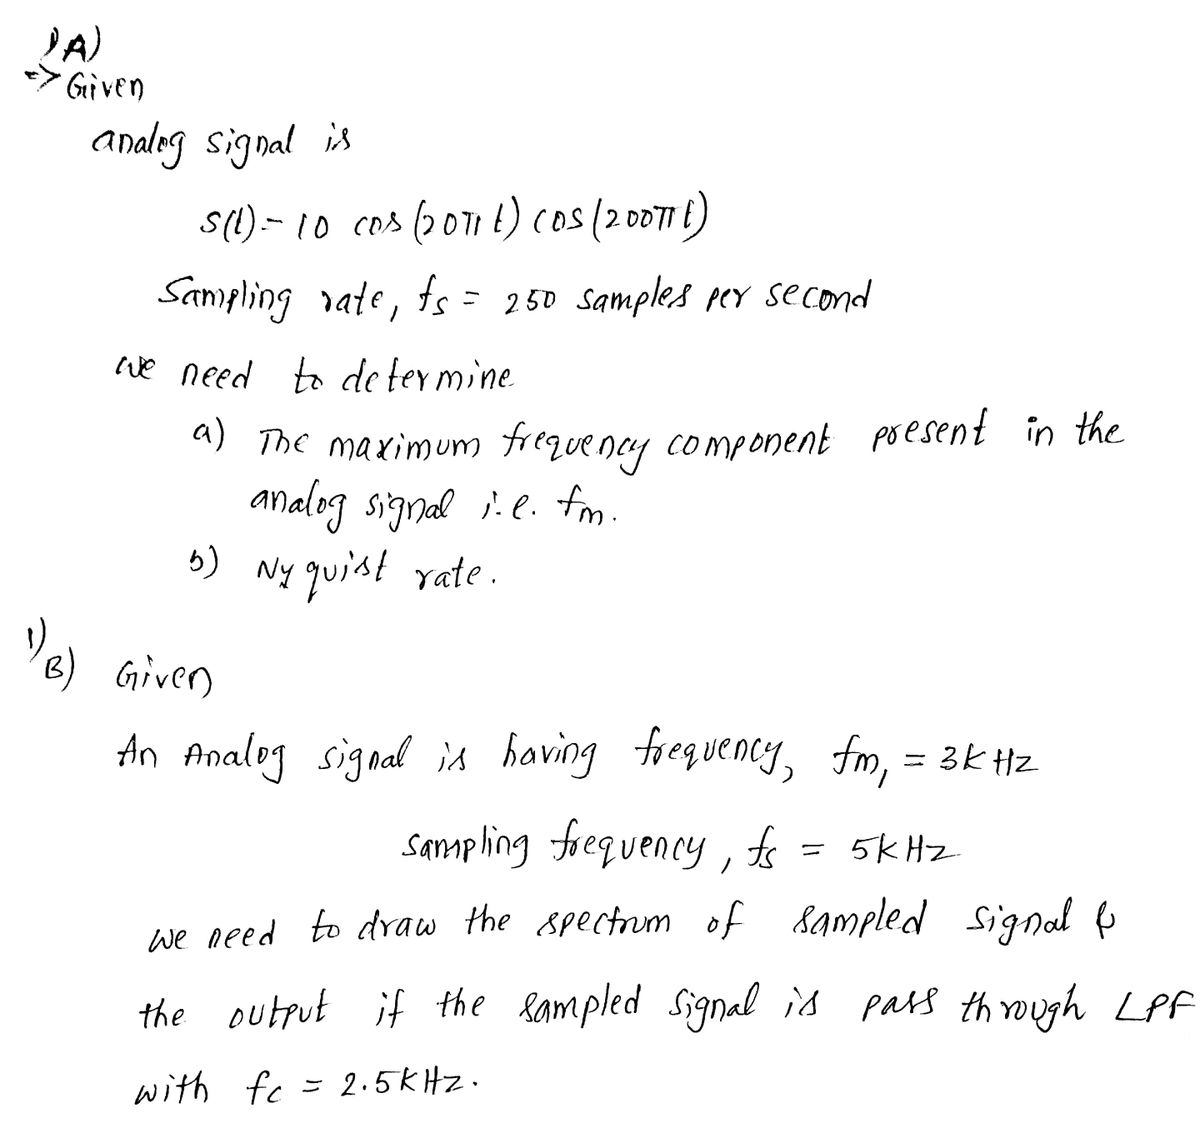 1) A)
=> Given
analog signal is
s(t) = 10 cos (20π t) cos (200π t)
Sampling rate, fs = 250 samples per second
we need to determine
a) The maximum frequency component present in the
analog signal i.e. fm.
b) Nyquist rate.
1) B) Given
An Analog signal is having frequency, fm, = 3kHz
sampling frequency, fs = 5kHz
we need to draw the spectrum of sampled signal &
the output if the sampled signal is pass through LPF
with fc = 2.5kHz.